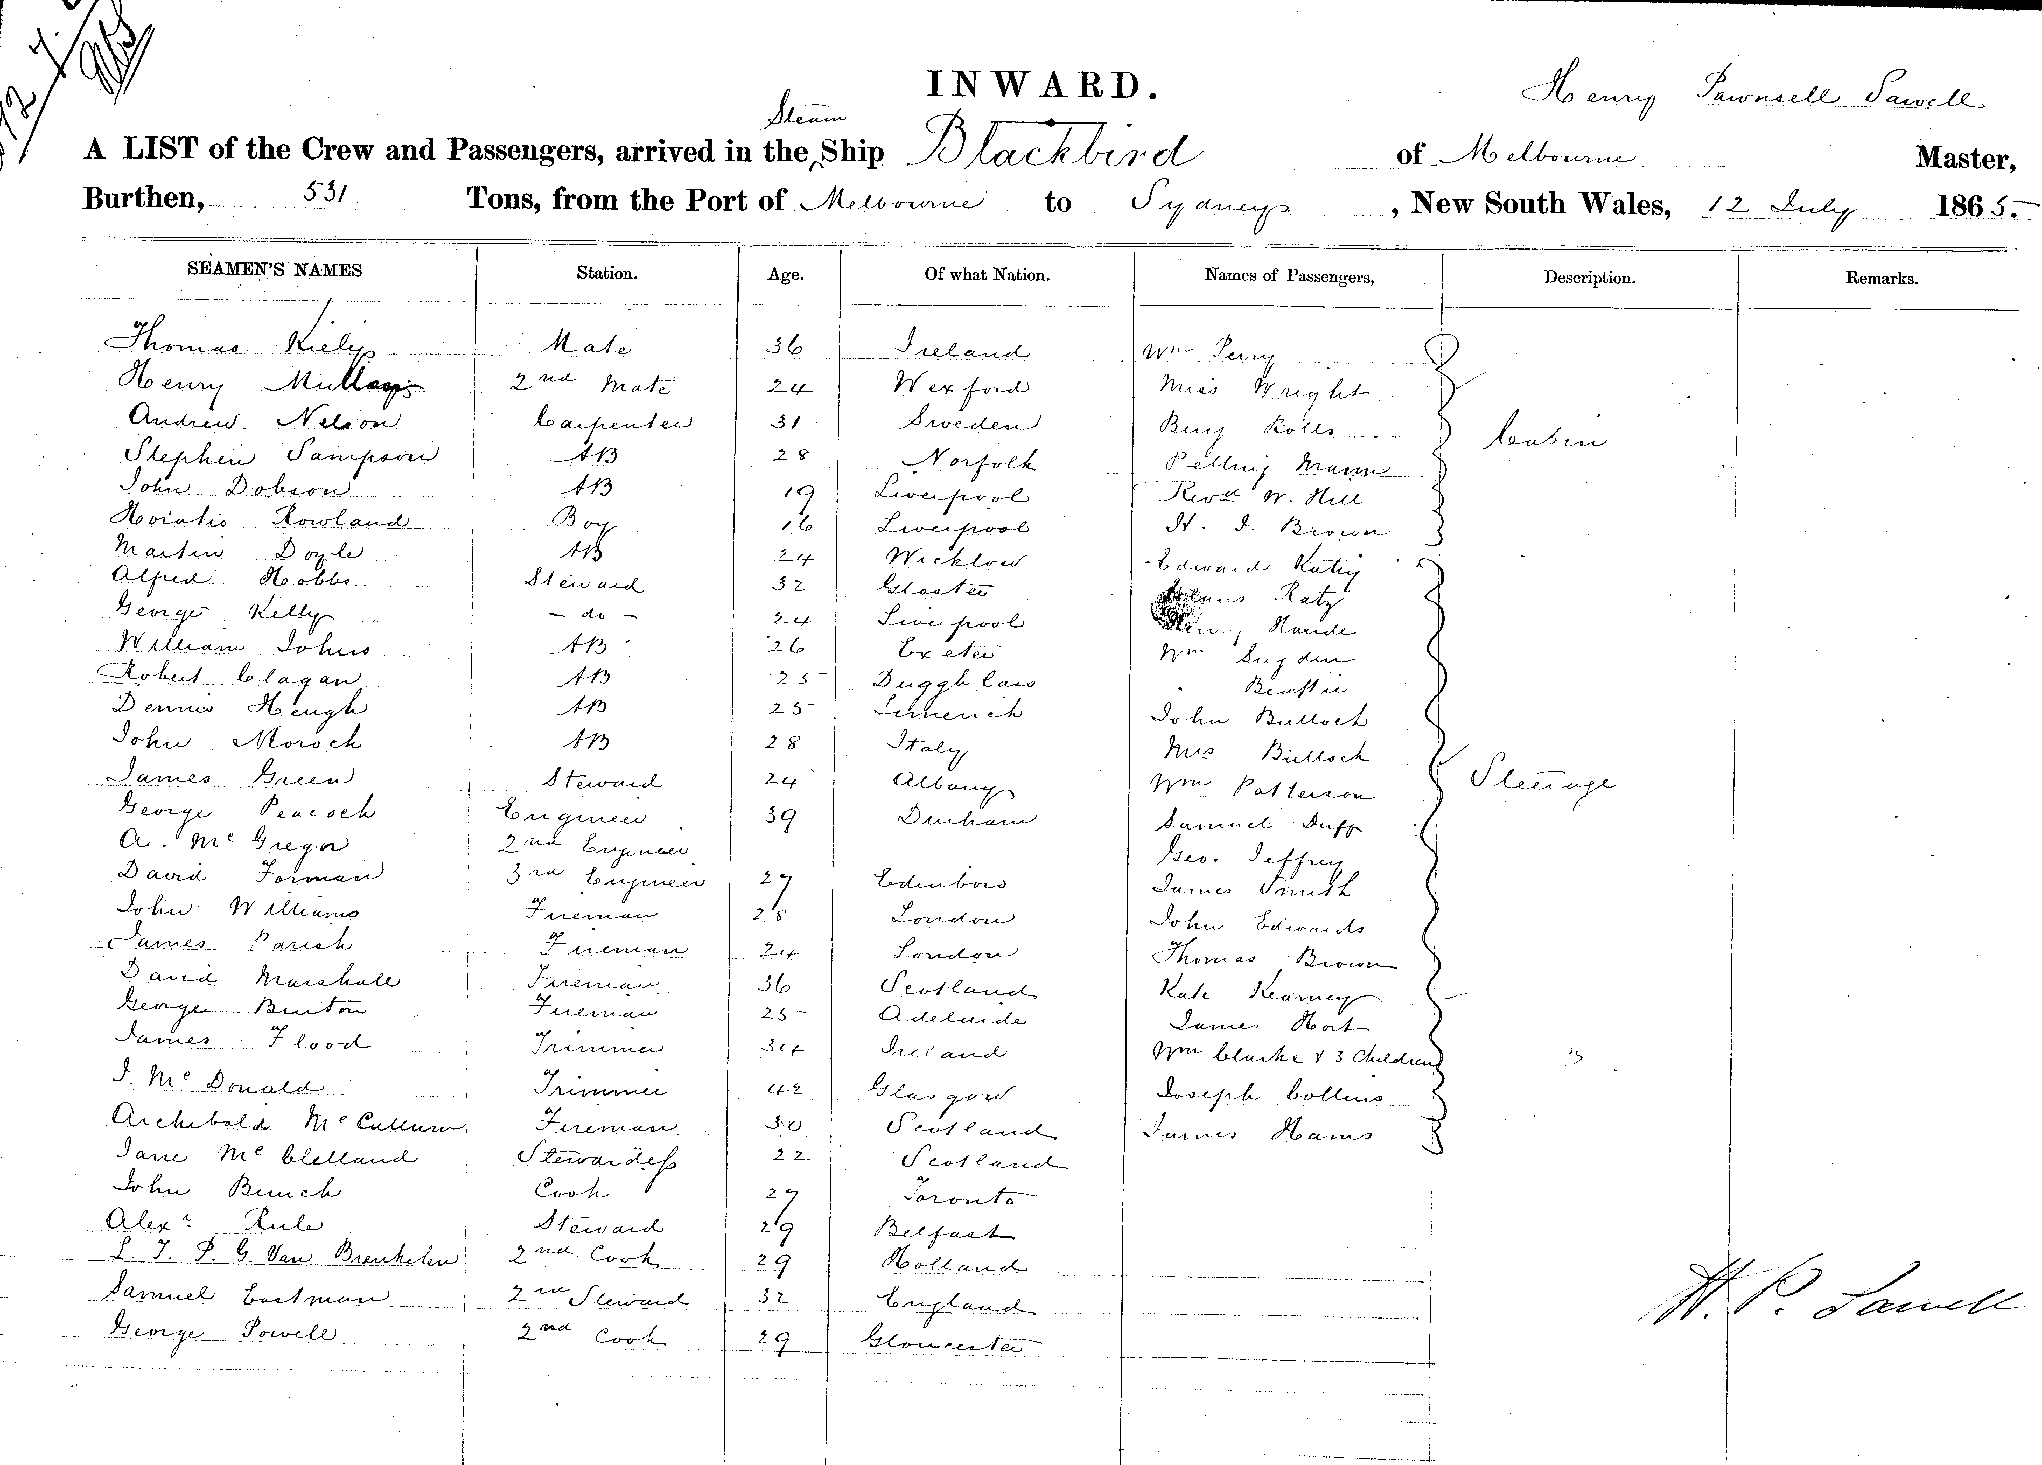 12 7
INWARD.
Henry Pownsell Sawell
Steam
A LIST of the Crew and Passengers, arrived in the Ship Blackbird of Melbourne Master,
Burthen, 531 Tons, from the Port of Melbourne to Sydney, New South Wales, 12 July 1865.
SEAMEN'S NAMES Station. Age. Of what Nation. Names of Passengers, Description. Remarks.
Thomas Kiely Mate 36 Ireland Wm Perry
Henry Mullay 2nd Mate 24 Wexford Miss Wright
Andrew Nelson Carpenter 31 Sweden Benj Rolls Cabin
Stephen Sampson AB 28 Norfolk Pelling Mann
John Dobson AB 19 Liverpool Revd W. Hill
Horatio Rowland Boy 16 Liverpool H. J. Brown
Martin Doyle AB 24 Wicklow Edward
Alfred Hobbs Steward 32 Gloster Ratz
George Kelly - do - 24 Liverpool
William Johns AB 26 Exeter Wm Sugden
Robert Clagan AB 25 Beattie
Dennis Heugh AB 25 Limerick John Bulloch
John Moroch AB 28 Italy Mrs Bulloch
James Green Steward 24 Albany Wm Patterson Steerage
George Peacock Engineer 39 Durham Samuel Duff
A. McGregor 2nd Engineer Geo. Jeffrey
David Forman 3rd Engineer 27 Edinboro James Smith
John Williams Fireman 28 London John Edwards
James Parish Fireman 24 London Thomas Brown
David Marshall Fireman 36 Scotland Kate Kearney
George Burton Fireman 25 Adelaide James Hort
James Flood Trimmer 34 Ireland Wm Clarke & 3 Children
J. McDonald Trimmer 42 Glasgow Joseph Collins
Archibald McCullum Fireman 30 Scotland James Hams
Jane McClelland Stewardess 22 Scotland
John Bunch Cook 27 Toronto
Alexr Rule Steward 29 Belfast
L. J. P. G Van Breukelen 2nd Cook 29 Holland
Samuel Eastman 2nd Steward 32 England
George Powell 2nd Cook 29 Gloucester
H. P. Sawell